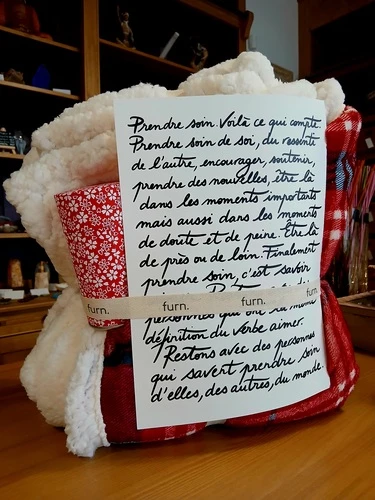 Prendre soin. Voilà ce qui compte.
Prendre soin de soi, du ressenti
de l'autre, encourager, soutenir,
prendre des nouvelles, être là
dans les moments importants
mais aussi dans les moments
de doute et de peine. Être là
de près ou de loin. Finalement
prendre soin, c'est savoir
furn. furn. furn. furn.
personnes qui ont la même
définition du verbe aimer.
Restons avec des personnes
qui savent prendre soin
d'elles, des autres, du monde.